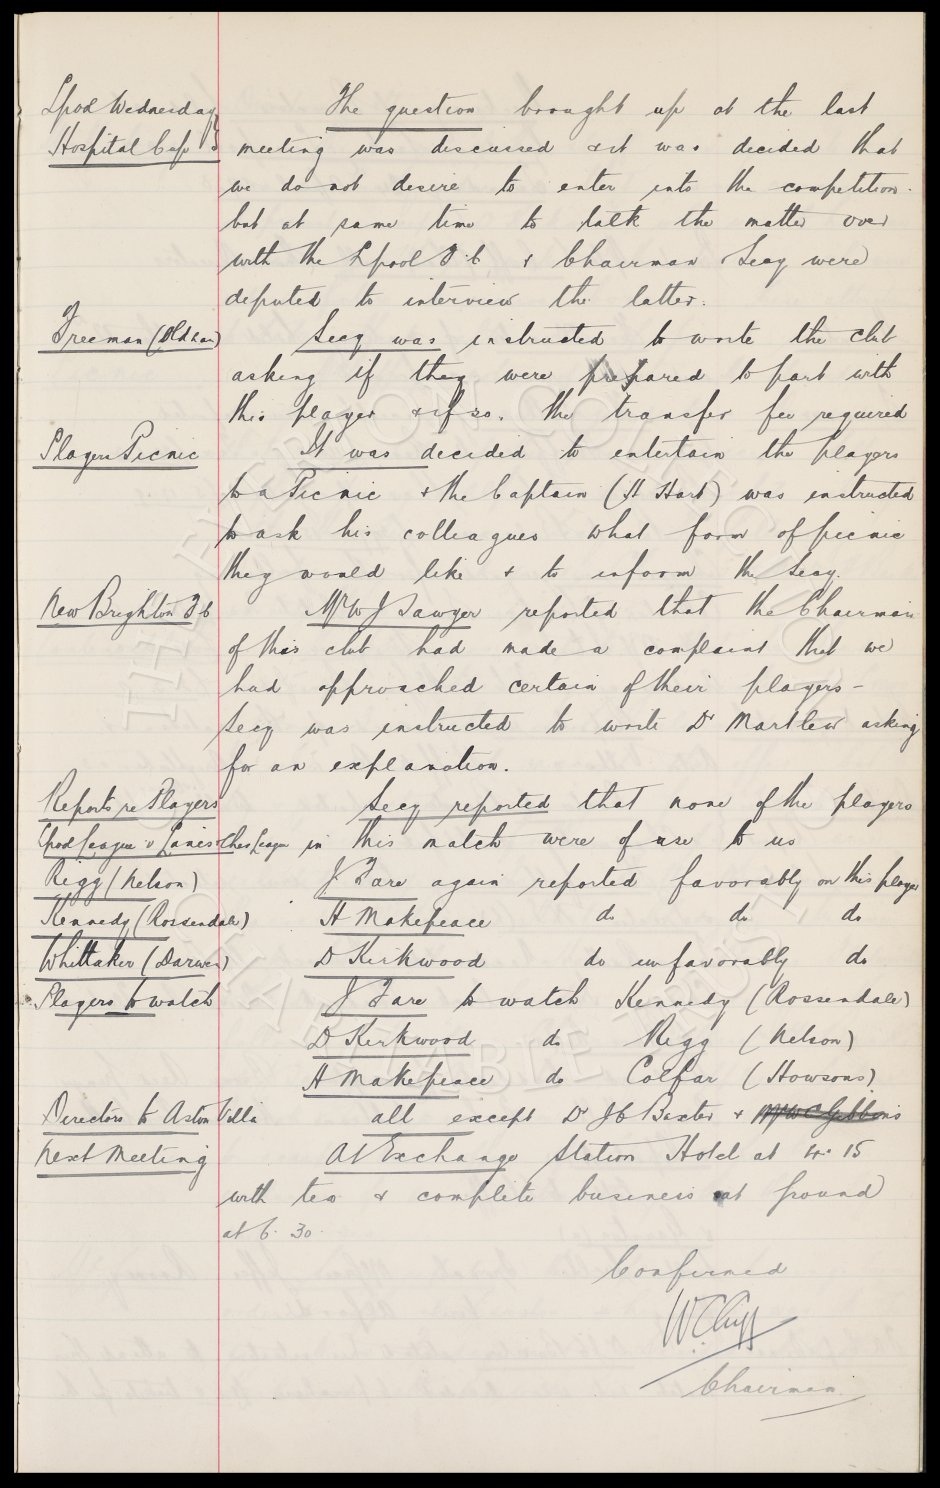 Lpool Wednesday
Hospital Cup
The question brought up at the last
meeting was discussed & it was decided that
we do not desire to enter into the competition.
but at same time to talk the matter over
with the Lpool F.C & Chairman & Secy were
deputed to interview the latter.
Freeman (Oldham)
Secy was instructed to write the club
asking if they were prepared to part with
this player & if so. the transfer fee required
Players Picnic
It was decided to entertain the players
to a Picnic & the Captain (H Hart) was instructed
to ask his colleagues what form of picnic
they would like & to inform the Secy.
New Brighton F.C
Mr W J Sawyer reported that the Chairman
of this club had made a complaint that we
had approached certain of their players -
Secy was instructed to write Dr Martlew asking
for an explanation.
Reports re Players
Lpool League v Lancashire League
Secy reported that none of the players
in this match were of use to us
Rigg (Nelson) J Fare again reported favorably on this player
Kennedy (Rossendale) H Makepeace do do do
Whittaker (Darwen) D Kirkwood do unfavorably do
Players to watch J Fare to watch Kennedy (Rossendale)
D Kirkwood do Rigg (Nelson)
H Makepeace do (Howsons)
Directors to Aston Villa all except Dr J C Baxter & Mr W C Gibbins
Next Meeting At Exchange Station Hotel at 4.15
with tea & complete business at ground
at 6.30.
Confirmed
Chairman